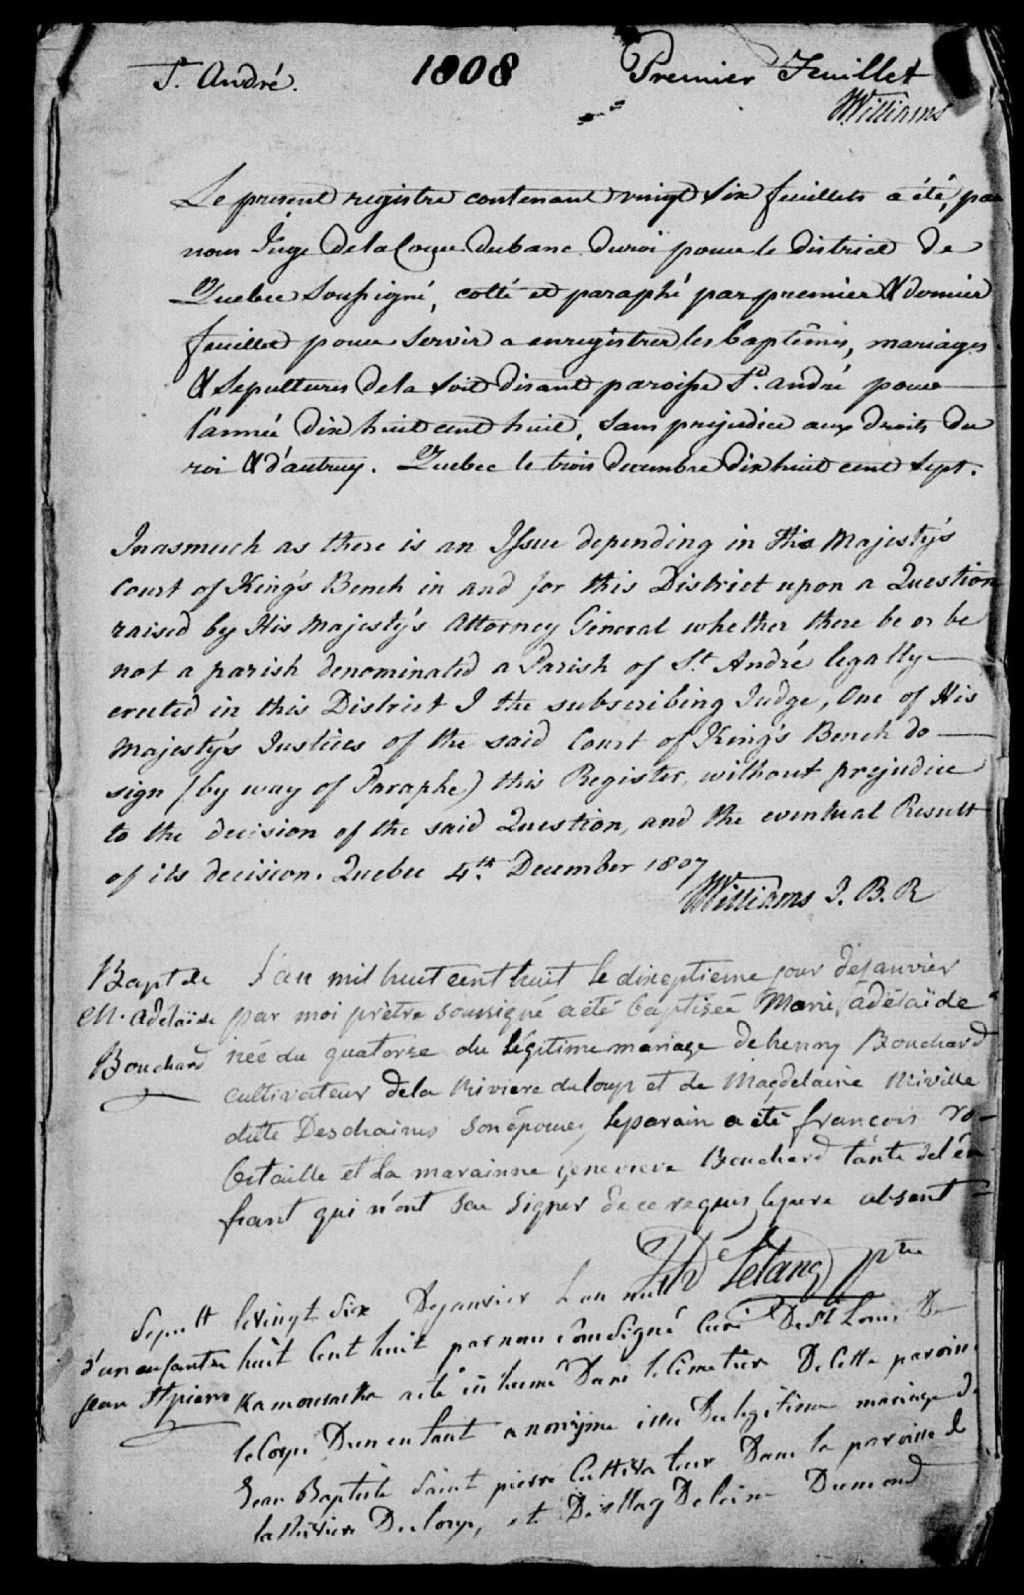 St. André. 1808 Premier Feuillet
Williams
Le present registre contenant vingt six feuillets a été, par
nous Juge de la Cour du banc du roi pour le district de
Quebec soussigné, cotté et paraphé par premier & dernier
feuillet pour servir a enregistrer les baptêmes, mariages
& sepultures de la soit disant paroisse St. andré pour
l'année dix huit cent huit, sans prejudice aux droits du
roi & d'autruy. Quebec le trois decembre dix huit cent sept.
Inasmuch as there is an Issue depending in His Majesty's
Court of King's Bench in and for this District upon a Question
raised by His Majesty's Attorney General whether there be or be
not a parish denominated a Parish of St. André legally
erected in this District I the subscribing Judge, One of His
Majesty's Justices of the said Court of King's Bench do
sign (by way of Paraphe) this Register, without prejudice
to the decision of the said Question, and the eventual Result
of its decision. Quebec 4th. December 1807
Williams J. B. R
Bapt de
M. adelaïde
Bouchard
L'an mil huit cent huit le dixeptieme jour de janvier
par moi prêtre soussigné a été baptisée Marie, adélaïde
née du quatorze du légitime mariage de henry Bouchard
cultivateur de la Riviere du loup et de Magdelaine Miville
dite Deschaines son épouse, le parain a été francois ro-
bitaille et la marainne genevieve Bouchard tante de l'én-
fant qui n'ont sçu signer de ce requis, le pere absent
Létang ptre
Sepult
d'un enfant de
jean St pierre
le vingt six De janvier L'an mil
huit Cent huit par nous soussigné Curé De St Louis De
Kamouraska a été inhumé Dans le Cimetière De Cette paroisse
le Corps D'un enfant anonyme issu Du legitime mariage de
Jean Baptiste Saint pierre Cultivateur Dans la paroisse de
la Rivière Du loup, et De Mag Deleine Dumond